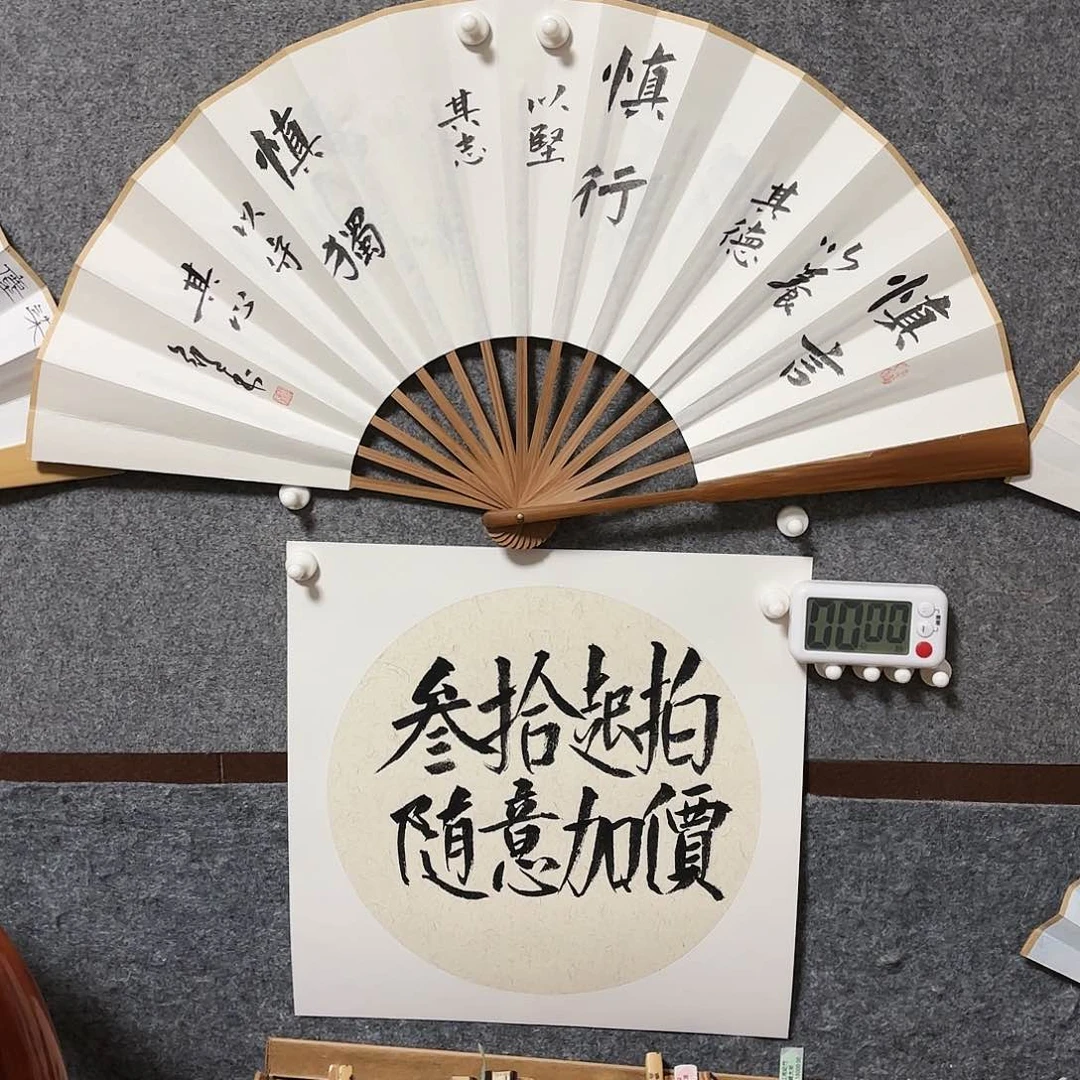 慎言
以養
其德
慎行
以堅
其志
慎獨
以守
其心
叁拾起拍
隨意加價
00:00